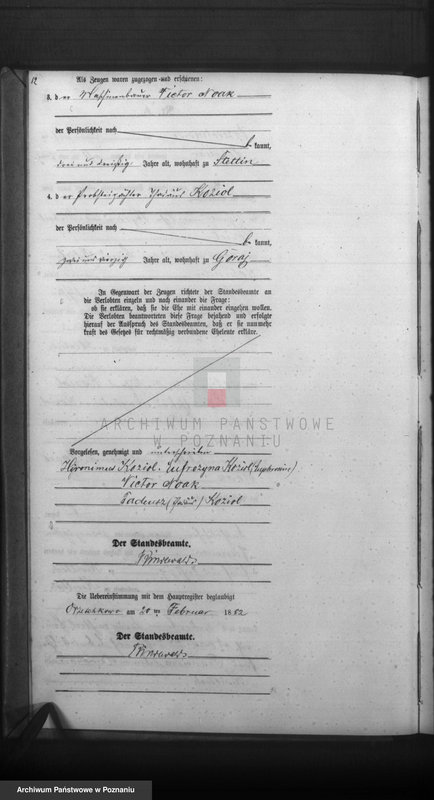 12
Als Zeugen waren zugezogen und erschienen:
3. d er Maschinenbauer Victor Noak
der Persönlichkeit nach
be kannt,
drei und dreißig Jahre alt, wohnhaft zu Stettin
4. d er Probsteipächter Koziol
der Persönlichkeit nach
be kannt,
zwei und vierzig Jahre alt, wohnhaft zu Goraj
In Gegenwart der Zeugen richtete der Standesbeamte an
die Verlobten einzeln und nach einander die Frage:
ob sie erklären, daß sie die Ehe mit einander eingehen wollen.
Die Verlobten beantworteten diese Frage bejahend und erfolgte
hierauf der Ausspruch des Standesbeamten, daß er sie nunmehr
kraft des Gesetzes für rechtmäßig verbundene Eheleute erkläre.
ARCHIWUM PAŃSTWOWE
W POZNANIU
Vorgelesen, genehmigt und unterschrieben
Hieronimus Koziol. Eufrozyna Koziol (Euphrosine).
Victor Noak
Tadeusz Koziol
Der Standesbeamte.
Die Uebereinstimmung mit dem Hauptregister beglaubigt
am 20 ten Februar 1882
Der Standesbeamte.
Archiwum Państwowe w Poznaniu